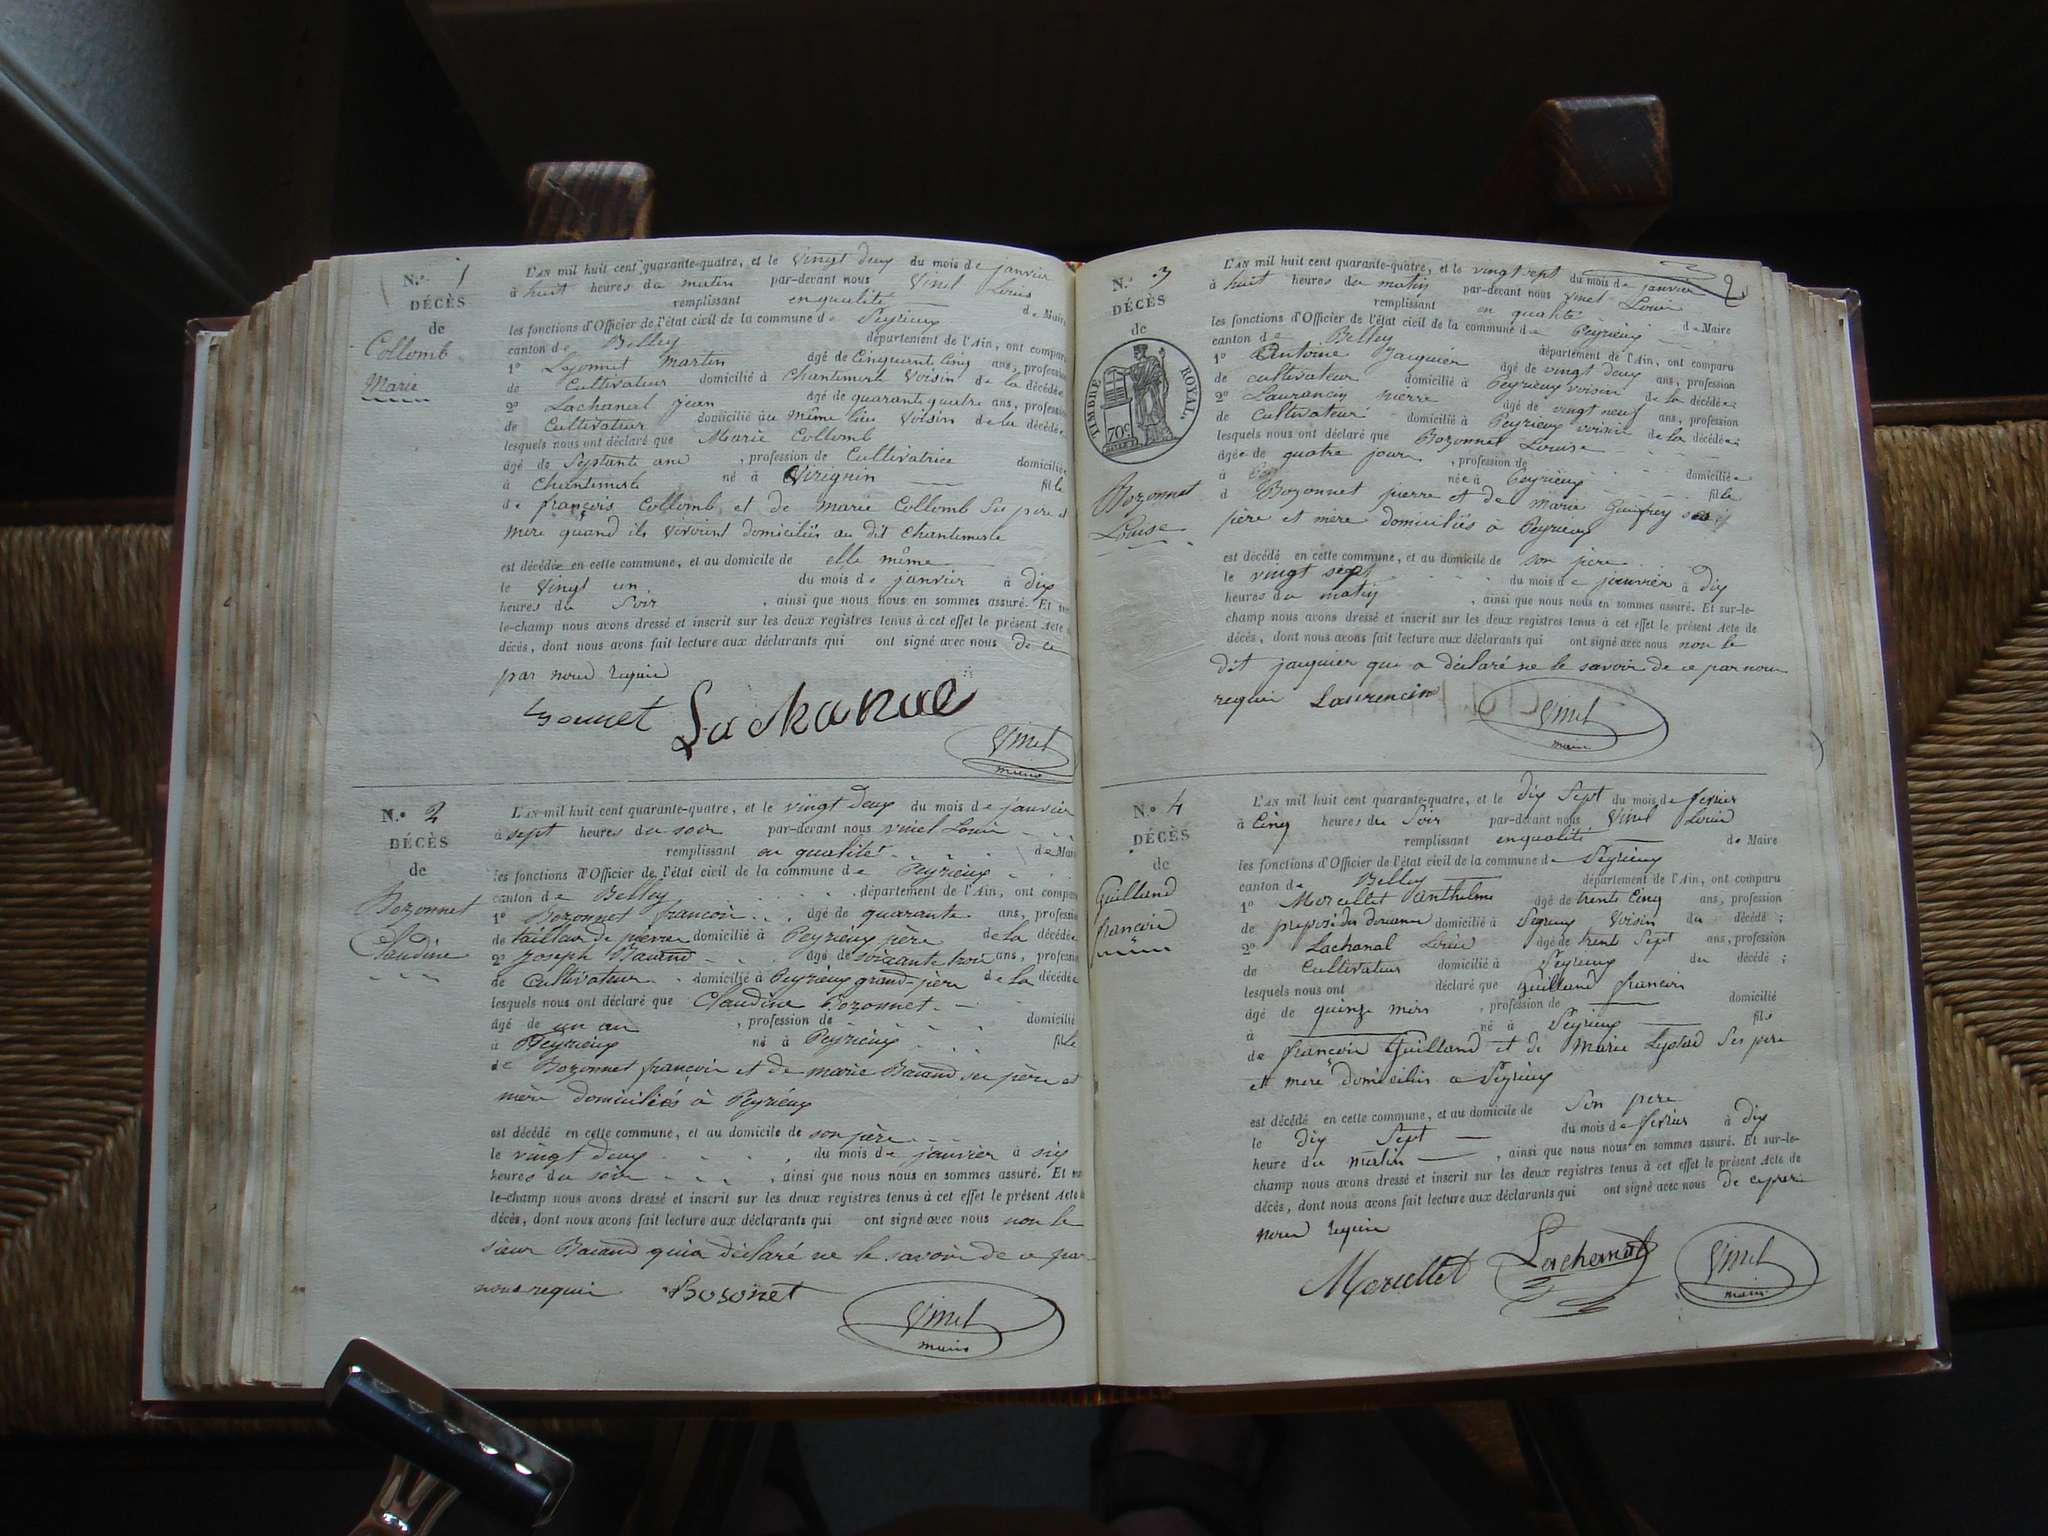 N.º 1
DÉCÈS
de
Collomb
Marie
L'AN mil huit cent quarante-quatre, et le vingt deux du mois de janvier
à huit heures du matin par-devant nous Vinel Louis
remplissant en qualité de Maire
les fonctions d'Officier de l'état civil de la commune de Peyrieux
canton de Belley département de l'Ain, ont comparu
1º Martin âgé de Cinquante Cinq ans, profession
de Cultivateur domicilié à Chantemerle Voisin de la décédée
2º Lachanal jean âgé de quarante quatre ans, profession
de Cultivateur domicilié au même lieu Voisin de la décédée
lesquels nous ont déclaré que Marie Collomb
âgé de Septante ans, profession de Cultivatrice domiciliée
à Chantemerle né à Virignin fille
de françois Collomb et de Marie Collomb Ses pere et
mere quand ils vivoint domiciliés au dit Chantemerle
est décédée en cette commune, et au domicile de elle même
le Vingt un du mois de janvier à dix
heures du Soir, ainsi que nous nous en sommes assuré. Et sur-
le-champ nous avons dressé et inscrit sur les deux registres tenus à cet effet le présent Acte de
décès, dont nous avons fait lecture aux déclarants qui ont signé avec nous de ce
par nous requis
Lachanal
Vinel
maire
N.º 2
DÉCÈS
de
Bozonnet
Claudine
L'AN mil huit cent quarante-quatre, et le vingt deux du mois de janvier
à sept heures du soir par-devant nous vinel Louis
remplissant en qualité de Maire
les fonctions d'Officier de l'état civil de la commune de Peyrieux
canton de Belley département de l'Ain, ont comparu
1º Bozonnet francois âgé de quarante ans, profession
de tailleur de pierre domicilié à Peyrieux père de la décédée
2º Joseph âgé de soixante trois ans, profession
de Cultivateur domicilié à Peyrieux grand-père de la décédée
lesquels nous ont déclaré que Claudine Bozonnet
âgé de un an, profession de domicilié
à Peyrieux né à Peyrieux fille
de Bozonnet francois et de marie ses père et
mère domiciliés à Peyrieux
est décédé en cette commune, et au domicile de son père
le vingt deux du mois de janvier à six
heures du soir, ainsi que nous nous en sommes assuré. Et sur-
le-champ nous avons dressé et inscrit sur les deux registres tenus à cet effet le présent Acte de
décès, dont nous avons fait lecture aux déclarants qui ont signé avec nous non le
sieur qui a déclaré ne le savoir de ce par
nous requis Bosonet
Vinel
maire
2
N.º 3
DÉCÈS
de
TIMBRE ROYAL
70c
Bozonnet
Louise
L'AN mil huit cent quarante-quatre, et le vingt sept du mois de janvier
à huit heures du matin par-devant nous vinel Louis
remplissant en qualité de Maire
les fonctions d'Officier de l'état civil de la commune de Peyrieux
canton de Belley département de l'Ain, ont comparu
1º Antoine Jaquier âgé de vingt deux ans, profession
de cultivateur domicilié à Peyrieux voisin de la décédée
2º Laurancin pierre âgé de vingt neuf ans, profession
de Cultivateur domicilié à Peyrieux voisin de la décédée
lesquels nous ont déclaré que Bozonnet Louise
âgée de quatre jours, profession de domiciliée
à née à Peyrieux fille
d Bozonnet pierre et de Marie ses
père et mère domiciliés à Peyrieux
est décédé en cette commune, et au domicile de son père
le vingt sept du mois de janvier à dix
heures du matin, ainsi que nous nous en sommes assuré. Et sur-le-
champ nous avons dressé et inscrit sur les deux registres tenus à cet effet le présent Acte de
décès, dont nous avons fait lecture aux déclarants qui ont signé avec nous non le
dit jaquier qui a déclaré ne le savoir de ce par nous
requis Laurencin
Vinel
maire
N.º 4
DÉCÈS
de
Guilland
francois
L'AN mil huit cent quarante-quatre, et le dix Sept du mois de fevrier
à Cinq heures du Soir par-devant nous Vinel Louis
remplissant en qualité de Maire
les fonctions d'Officier de l'état civil de la commune de Peyrieux
canton de Belley département de l'Ain, ont comparu
1º Morcellet Anthelme âgé de trente Cinq ans, profession
de préposé des douanne domicilié à Peyrieux Voisin du décédé;
2º Lachanal Louis âgé de trente Sept ans, profession
de Cultivateur domicilié à Peyrieux du décédé;
lesquels nous ont déclaré que Guilland francois
âgé de quinze mois, profession de domicilié
à né à Peyrieux fils
de francois Guilland et de Marie Ses pere
et mere domiciliés a Peyrieux
est décédé en cette commune, et au domicile de Son pere
le dix Sept du mois de fevrier à dix
heure du matin, ainsi que nous nous en sommes assuré. Et sur-le-
champ nous avons dressé et inscrit sur les deux registres tenus à cet effet le présent Acte de
décès, dont nous avons fait lecture aux déclarants qui ont signé avec nous de ce par
nous requis
Morcellet Lachanal Vinel
maire